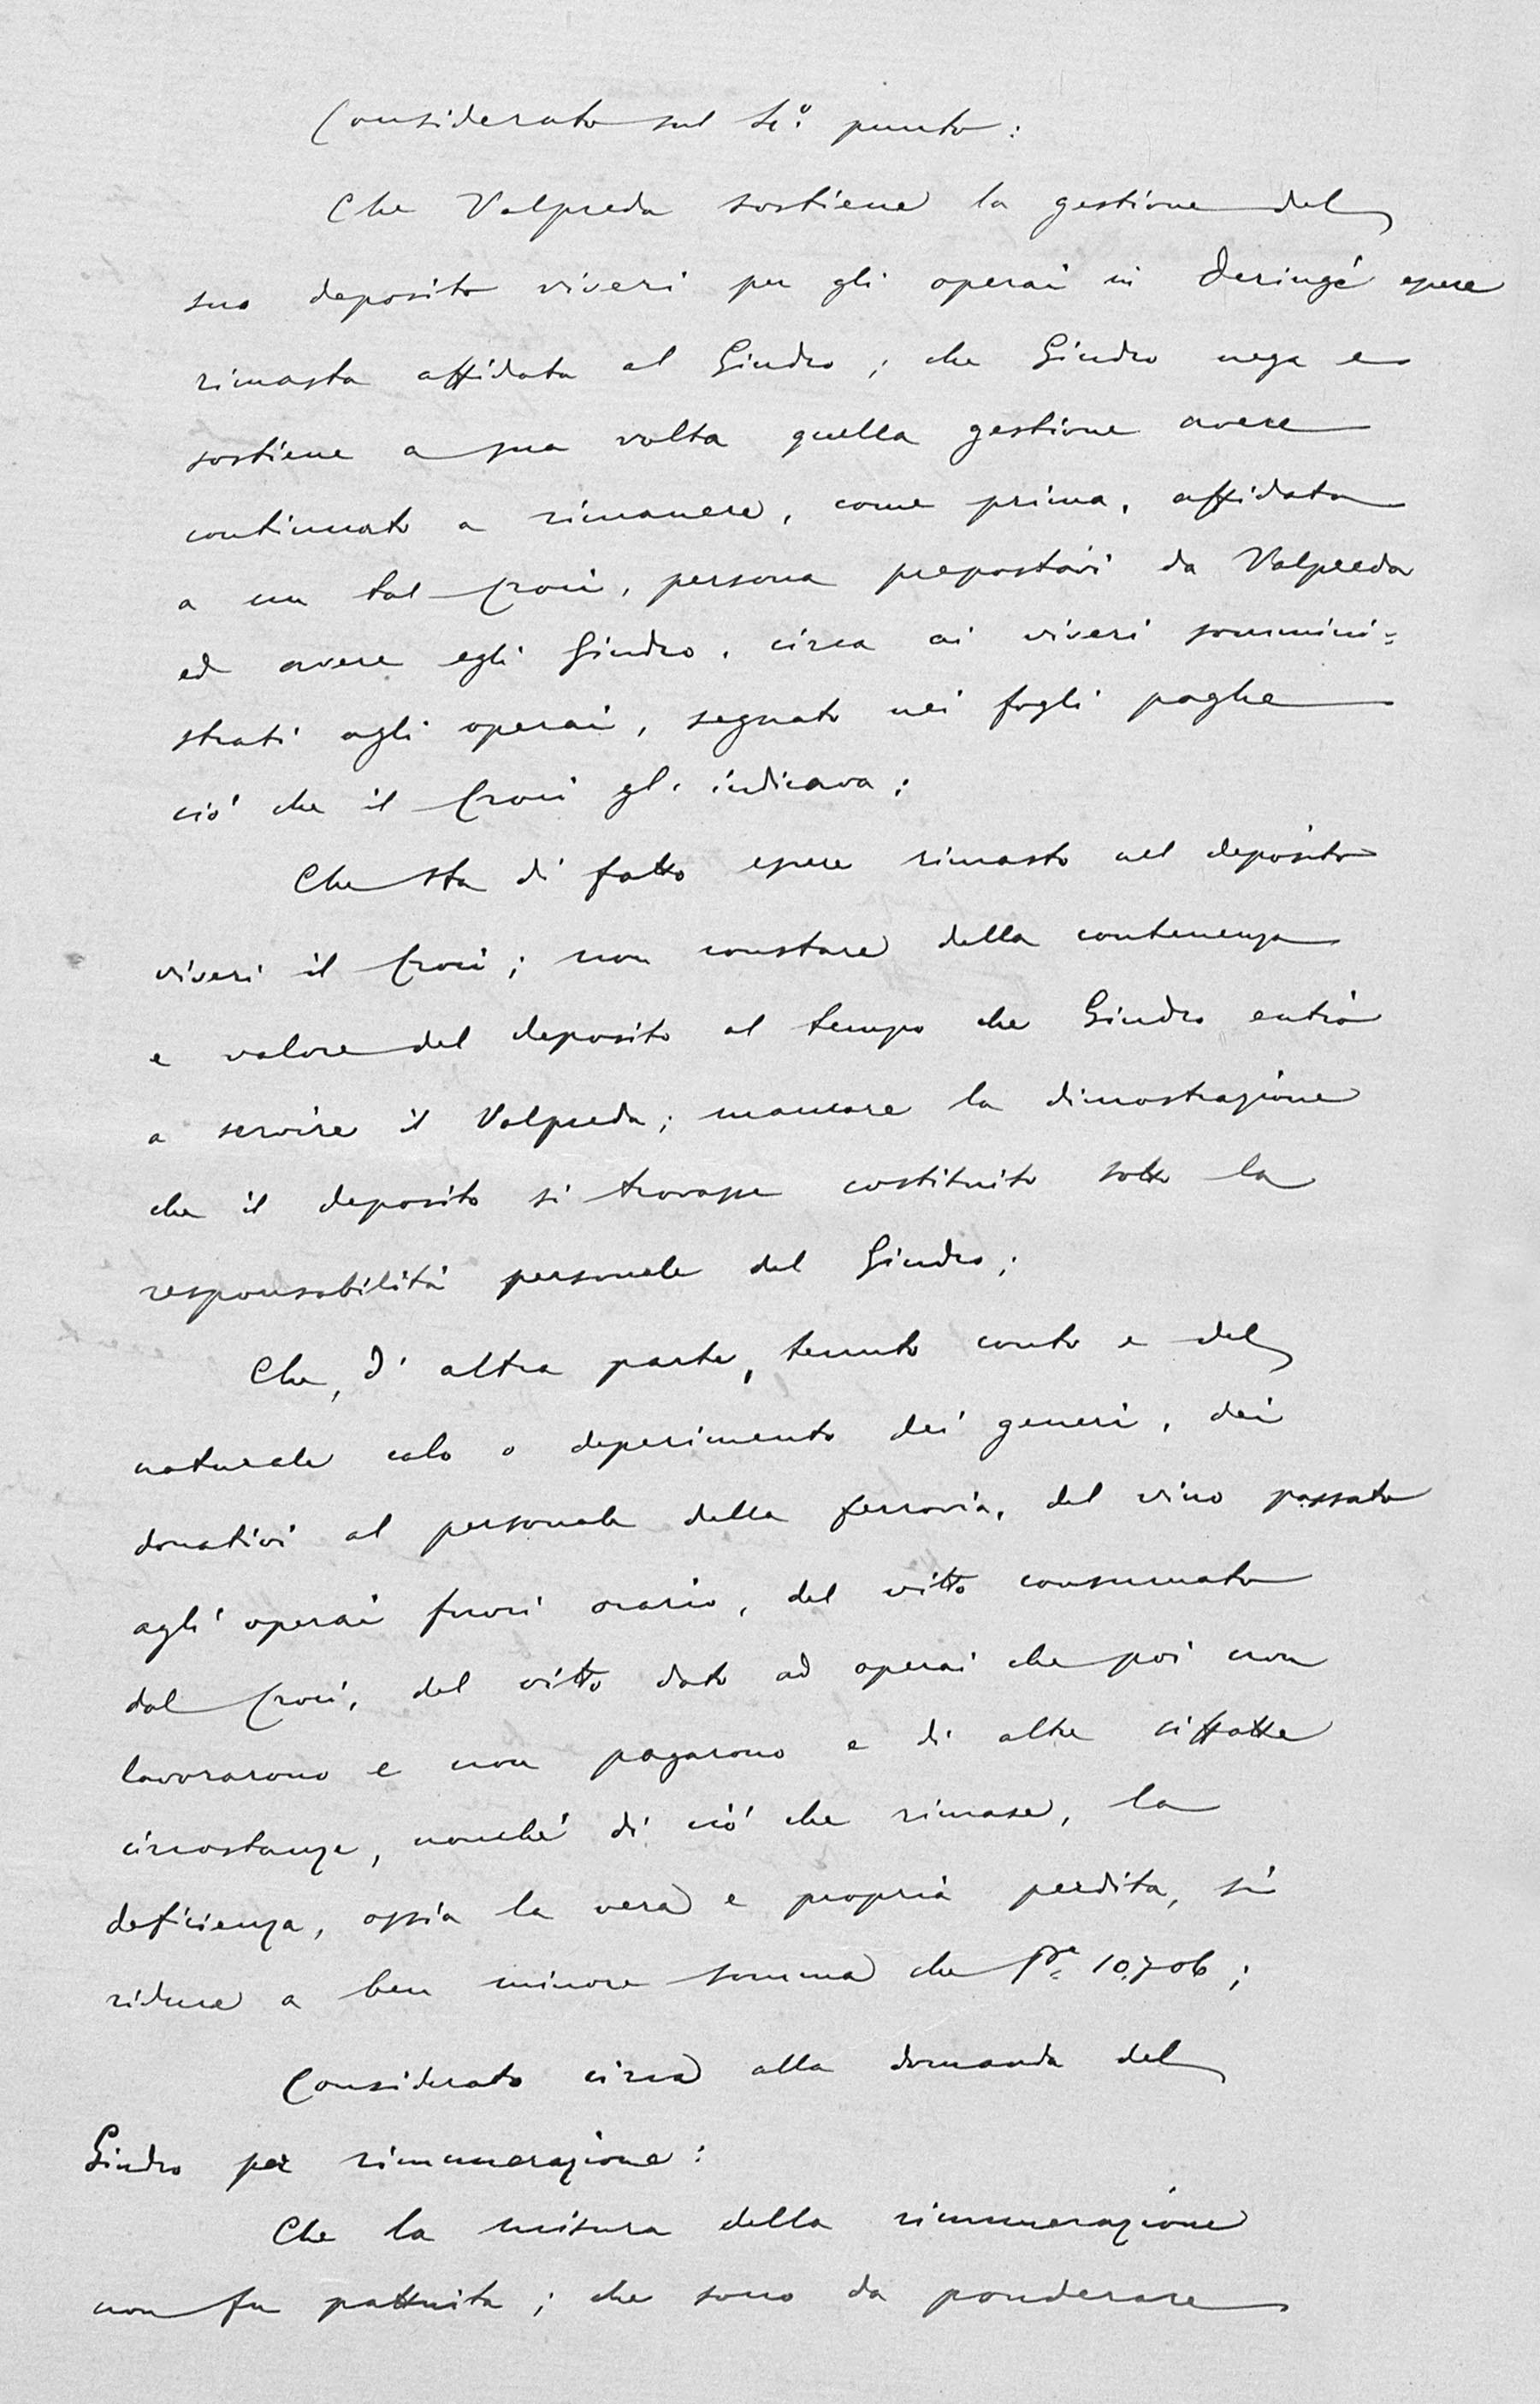 Considerato sul 4º punto:
Che Valpreda sostiene la gestione del
suo deposito viveri per gli operai in Deringé essere
rimasta affidata al Giudro; che Giudro nega e
sostiene a sua volta quella gestione avere
continuato a rimanere, come prima, affidata
a un tal Croci, persona prepostavi da Valpreda
ed avere egli Giudro, circa ai viveri sommini=
strati agli operai, segnato nei fogli paghe
ciò che il Croci gli indicava;
Che sta di fatto essere rimasto nel deposito
viveri il Croci; non constare della contenenza
e valore del deposito al tempo che Giudro entrò
a servire il Valpreda; mancare la dimostrazione
che il deposito si trovasse costituito sotto la
responsabilità personale del Giudro;
Che, d'altra parte, tenuto conto e del
naturale calo o deperimento dei generi, dei
donativi al personale della ferrovia, del vino passato
agli operai fuori orario, del vitto consumato
dal Croci, del vitto dato ad operai che poi non
lavorarono e non pagarono e di altre siffatte
circostanze, nonché di ciò che rimase, la
deficienza, ossia la vera e propria perdita, si
riduce a ben minore somma che 10.706;
Considerato circa alla domanda del
Giudro per rimunerazione:
Che la misura della rimunerazione
non fu pattuita; che sono da ponderare